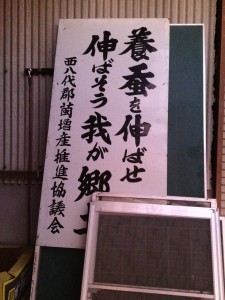 養蚕を伸ばせ
伸ばそう我が郷土
西八代郡繭増産推進協議会